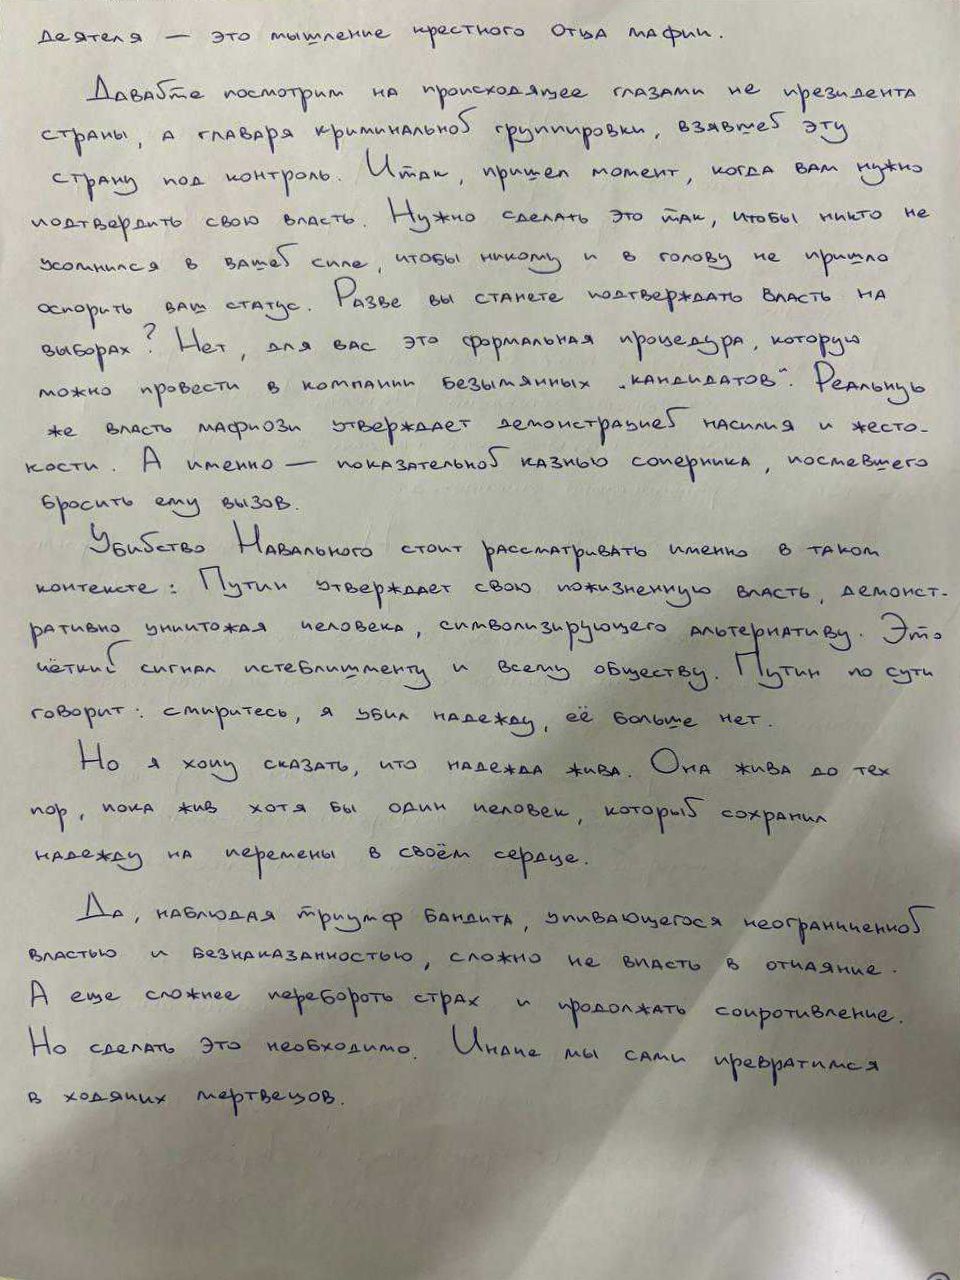 деятеля — это мышление крестного отца мафии.
Давайте посмотрим на происходящее глазами не президента
страны, а главаря криминальной группировки, взявшей эту
страну под контроль. Итак, пришел момент, когда вам нужно
подтвердить свою власть. Нужно сделать это так, чтобы никто не
усомнился в вашей силе, чтобы никому и в голову не пришло
оспорить ваш статус. Разве вы станете подтверждать власть на
выборах? Нет, для вас это формальная процедура, которую
можно провести в компании безымянных „кандидатов“. Реальную
же власть мафиози утверждает демонстрацией насилия и жесто-
кости. А именно — показательной казнью соперника, посмевшего
бросить ему вызов.
Убийство Навального стоит рассматривать именно в таком
контексте: Путин утверждает свою пожизненную власть, демонст-
ративно уничтожая человека, символизирующего альтернативу. Это
чёткий сигнал истеблишменту и всему обществу. Путин по сути
говорит: смиритесь, я убил надежду, её больше нет.
Но я хочу сказать, что надежда жива. Она жива до тех
пор, пока жив хотя бы один человек, который сохранил
надежду на перемены в своём сердце.
Да, наблюдая триумф бандита, упивающегося неограниченной
властью и безнаказанностью, сложно не впасть в отчаяние.
А еще сложнее перебороть страх и продолжать сопротивление.
Но сделать это необходимо. Иначе мы сами превратимся
в ходячих мертвецов.